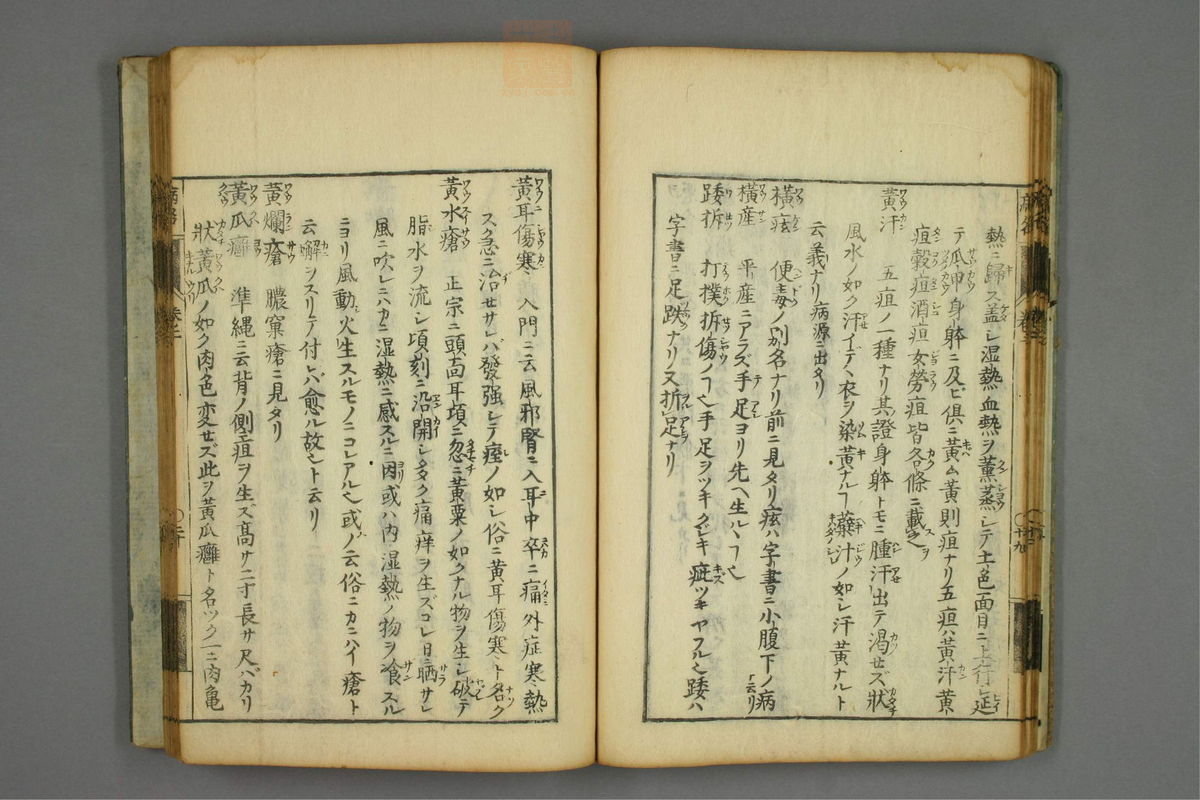 熱ニ歸ス蓋シ湿熱血熱ヲ薫蒸シテ土色面目ニ上行シ延
テ瓜甲身躰ニ及ビ俱ニ黃ム黃則疸ナリ五疸ハ黃汗黃
疸穀疸酒疸女勞疸皆各條ニ載之
黃汗 五疸ノ一種ナリ其證身躰トモニ腫汗出テ渴セズ狀
風水ノ如ク汗イデヽ衣ヲ染黃ナルヿ蘗汁ノ如シ汗黃ナルト
云義ナリ病源ニ出タリ
橫痃 便毒ノ別名ナリ前ニ見タリ痃ハ字書ニ小腹下ノ病
ト云リ
橫産 平産ニアラズ手足ヨリ先ヘ生ルヽヿ也
踒拆 打撲拆傷ノヿ也手足ヲツキクジキ疵ツキヤフル也踒ハ
字書ニ足跌ナリ又折足ナリ
黃耳傷寒 入門ニ云風邪腎ニ入耳中卒ニ痛外症寒熱
ス急ニ治セサレバ發强シテ痙ノ如シ俗ニ黃耳傷寒ト名ク
黃水瘡 正宗ニ頭面耳項ニ忽ニ黃粟ノ如クナル物ヲ生シ破テ
脂水ヲ流シ頃刻ニ沿開シ多ク痛痒ヲ生ズコレ日ニ晒サレ
風ニ吹レニハカニ湿熱ニ感スルニ因或ハ内湿熱ノ物ヲ飡スル
ニヨリ風動火生スルモノニコレアル也或ノ云俗ニカニハイ瘡ト
云蠏ヲスリテ付レバ愈ル故也ト云リ
黃爛瘡 膿窠瘡ニ見タリ
黃瓜癰 準縄ニ云背ノ側疽ヲ生ズ高サ二寸長サ尺バカリ
狀黃瓜ノ如ク肉色変セズ此ヲ黃瓜癰ト名ツク一ニ肉亀